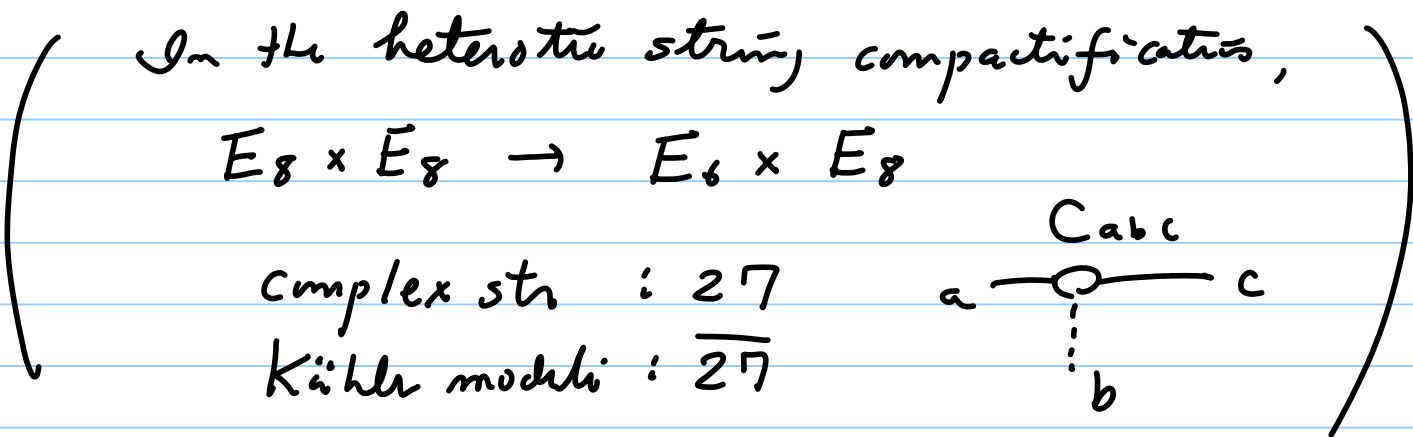 In the heterotic string compactification,
E₈ × E₈ → E₆ × E₈
C_abc
complex str : 27
a c
Kähler moduli : \overline{27}
b